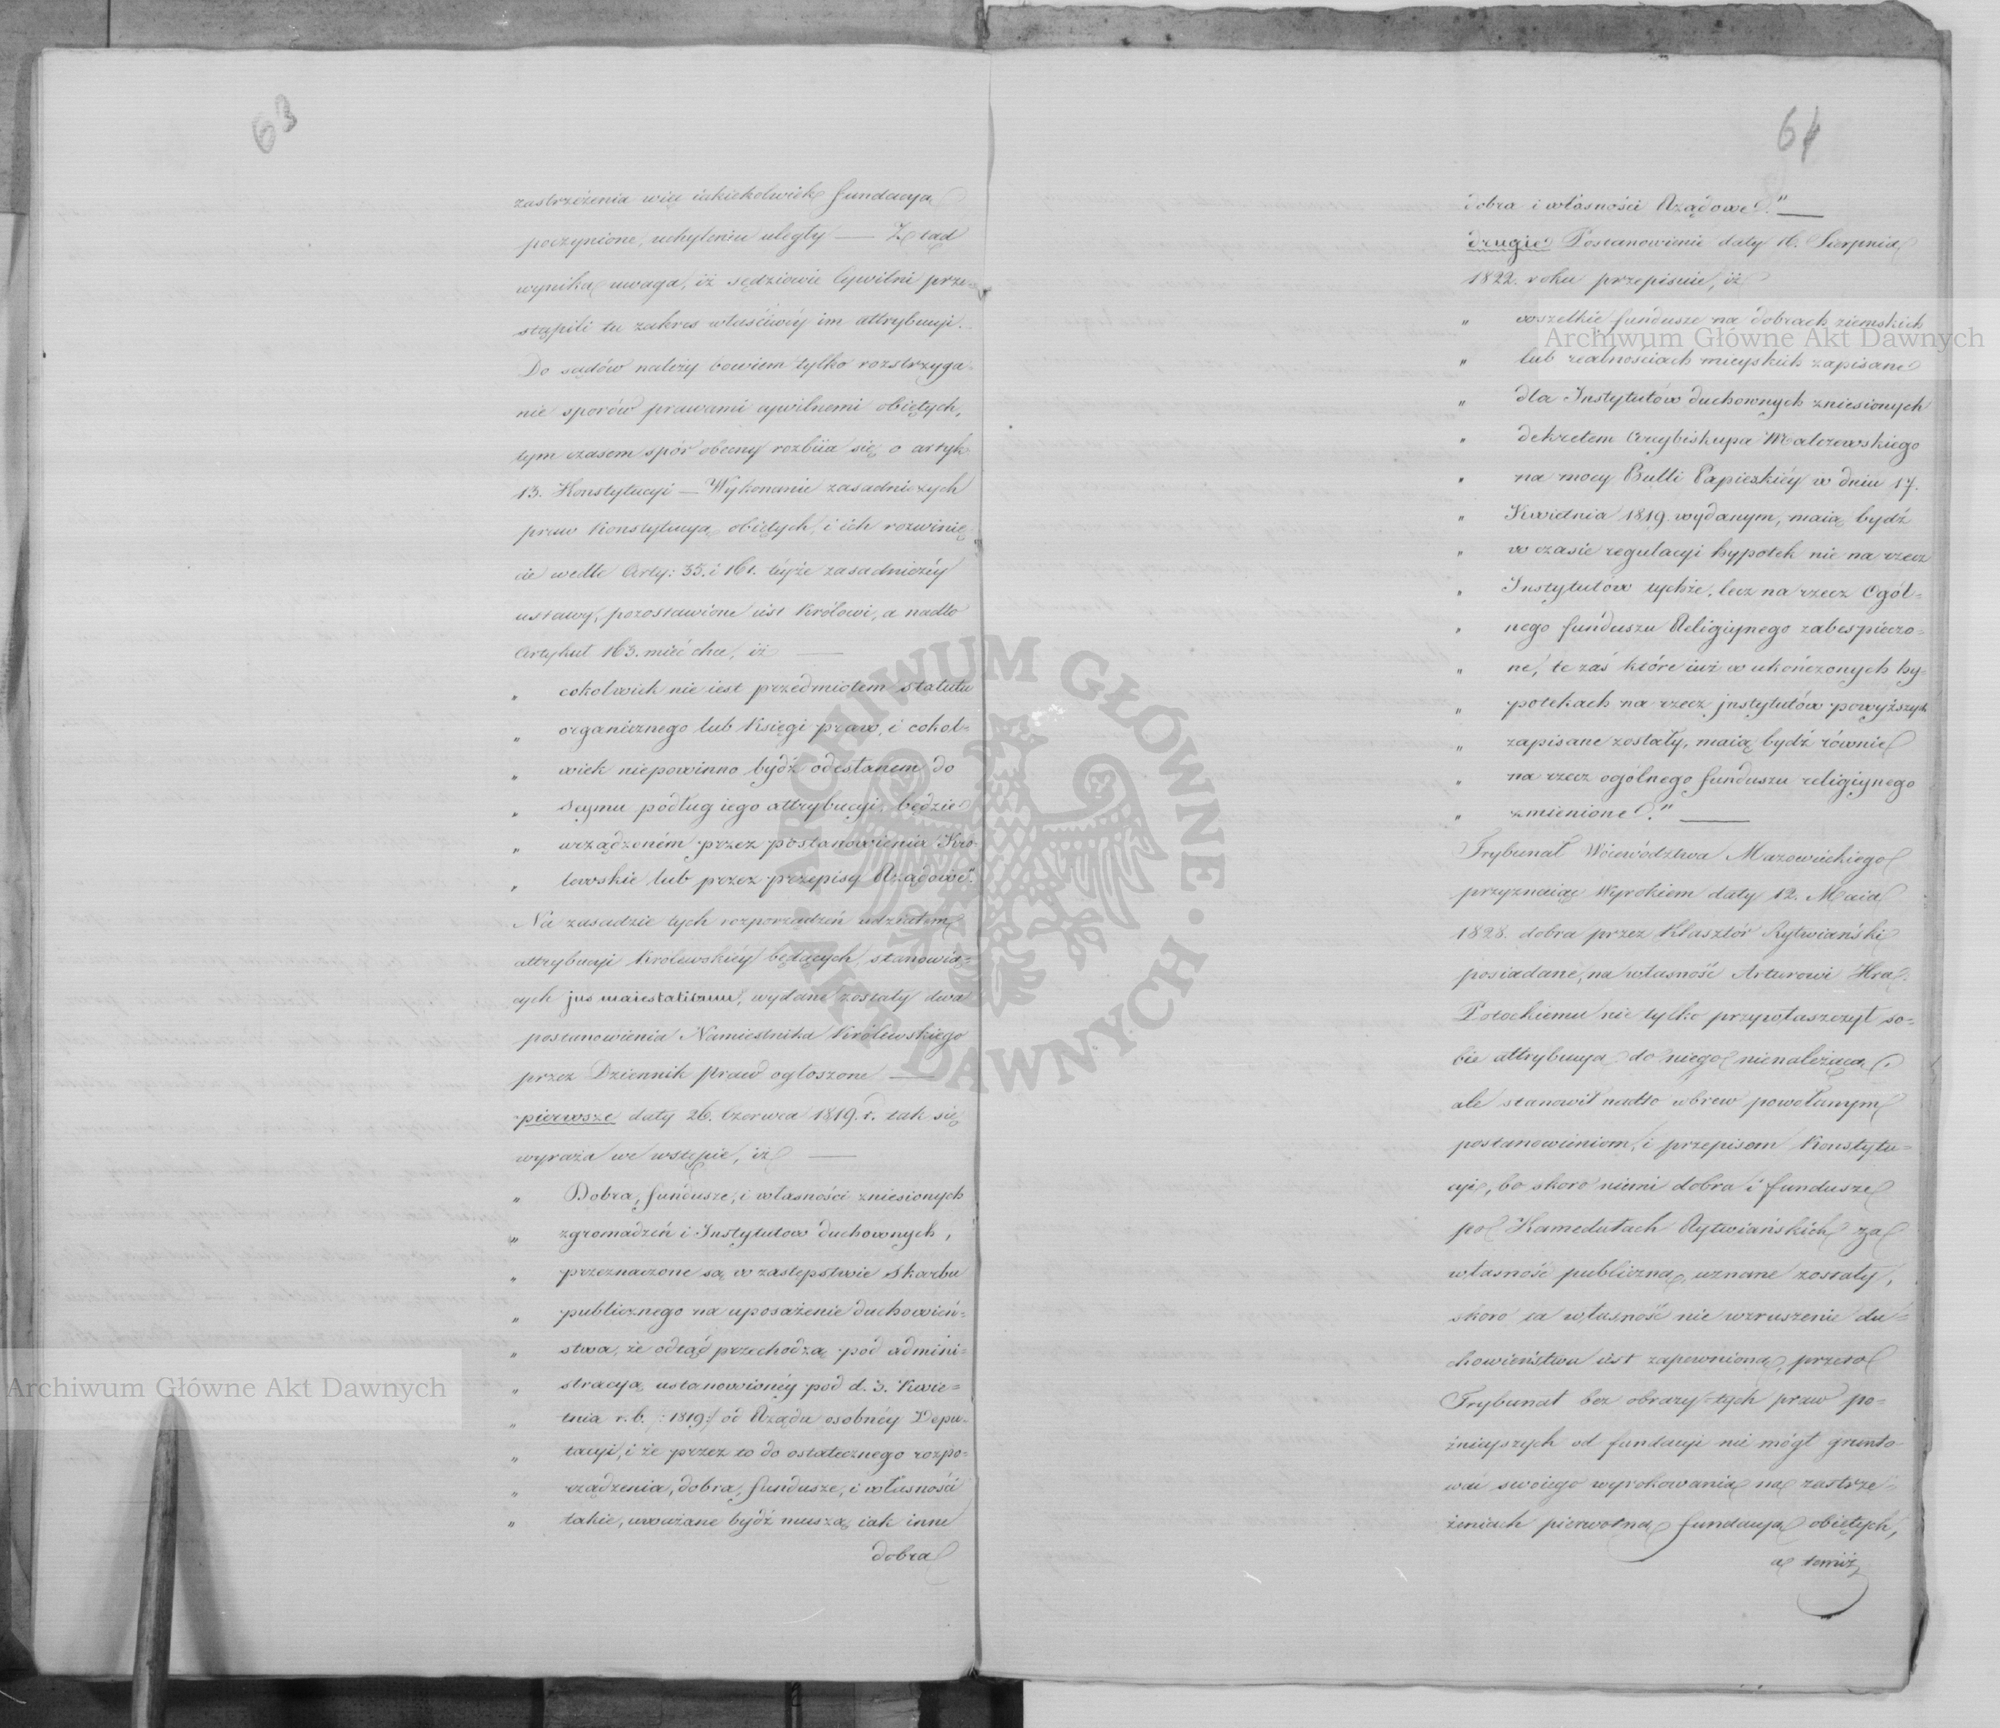 63
zastrzeżenia więc iakiekolwiek fundacyą
poczynione, uchyleniu uległy — Ztąd
wynika uwaga, iż sędziowie Cywilni prze-
stąpili tu zakres właściwéy im attrybucyi.
Do sądów należy bowiem tylko rozstrzyga-
nie sporów prawami cywilnemi obiętych,
tym czasem spór obecny rozbiia się o artyk.
13. Konstytucyi — Wykonanie zasadniczych
praw Konstytucyą obiętych, i ich rozwinię-
cie wedle Arty: 35. i 161. téyże zasadniczéy
ustawy, pozostawione iest Królowi, a nadto
Artykuł 163. mieć chce, iż —
„ cokolwiek nie iest przedmiotem statutu
„ organicznego lub Księgi praw, i cokol-
„ wiek niepowinno bydź odesłanem do
„ Seymu podług iego attrybucyi, będzie
„ urządzoném przez postanowienia Kró-
„ lewskie lub przez przepisy Rządowe.
Na zasadzie tych rozporządzeń udziałem
attrybucyi Królewskiéy będących, stanowią-
cych jus maiestaticum, wydane zostały dwa
postanowienia Namiestnika Królewskiego
przez Dziennik Praw ogłoszone —
pierwsze daty 26. Czerwca 1819. r. tak się
wyraża we wstępie, iż —
„ Dobra, fundusze, i własności zniesionych
„ zgromadzeń i Instytutow duchownych,
„ przeznaczone są w zastępstwie Skarbu
„ publicznego na uposażenie duchowień-
„ stwa, że odtąd przechodzą pod admini-
„ stracyą ustanowionéy pod d. 3. Kwie-
„ tnia r. b. /:1819:/ od Rządu osobnéy Depu-
„ tacyi, i że przez to do ostatecznego rozpo-
„ rządzenia, dobra, fundusze, i własności
„ takie, uważane bydź muszą iak inne
dobra
64
dobra i własności Rządowe." —
drugie Postanowienie daty 16. Sierpnia
1822. roku przepisuie, iż
„ wszelkie fundusze na dobrach ziemskich
„ lub realnościach mieyskich zapisane
„ dla Instytutów duchownych zniesionych
„ dekretem Arcybiskupa Malczewskiego
„ na mocy Bulli Papieskiéy w dniu 17.
„ Kwietnia 1819. wydanym, maią bydź
„ w czasie regulacyi hypotek nie na rzecz
„ Instytutów tychże, lecz na rzecz Ogól-
„ nego funduszu Religiynego zabespieczo-
„ ne, te zaś które iuż w ukończonych hy-
„ potekach na rzecz instytutów powyższych
„ zapisane zostały, maią bydź równie
„ na rzecz ogólnego funduszu religiynego
„ zmienione." —
Trybunał Woiewództwa Mazowieckiego
przyznaiąc Wyrokiem daty 12. Maia
1828. dobra przez Klasztór Rytwiański
posiadane, na własność Arturowi Hra:
Potockiemu nie tylko przywłaszczył so-
bie attrybucyą do niego nienależącą,
ale stanowił nadto wbrew powołanym
postanowieniom, i przepisom Konstytu-
cyi, bo skoro niemi dobra i fundusze
po Kamedułach Rytwiańskich za
własność publiczną uznane zostały,
skoro ta własność nie wzruszenie du-
chowieństwu iest zapewnioną, przeto
Trybunał bez obrazy tych praw po-
źnieyszych od fundacyi nie mógł grunto-
wać swoiego wyrokowania na zastrze-
żeniach pierwotną fundacyą obiętych,
a temiż
Archiwum Główne Akt Dawnych
Archiwum Główne Akt Dawnych
ARCHIWUM GŁÓWNE · AKT DAWNYCH ·